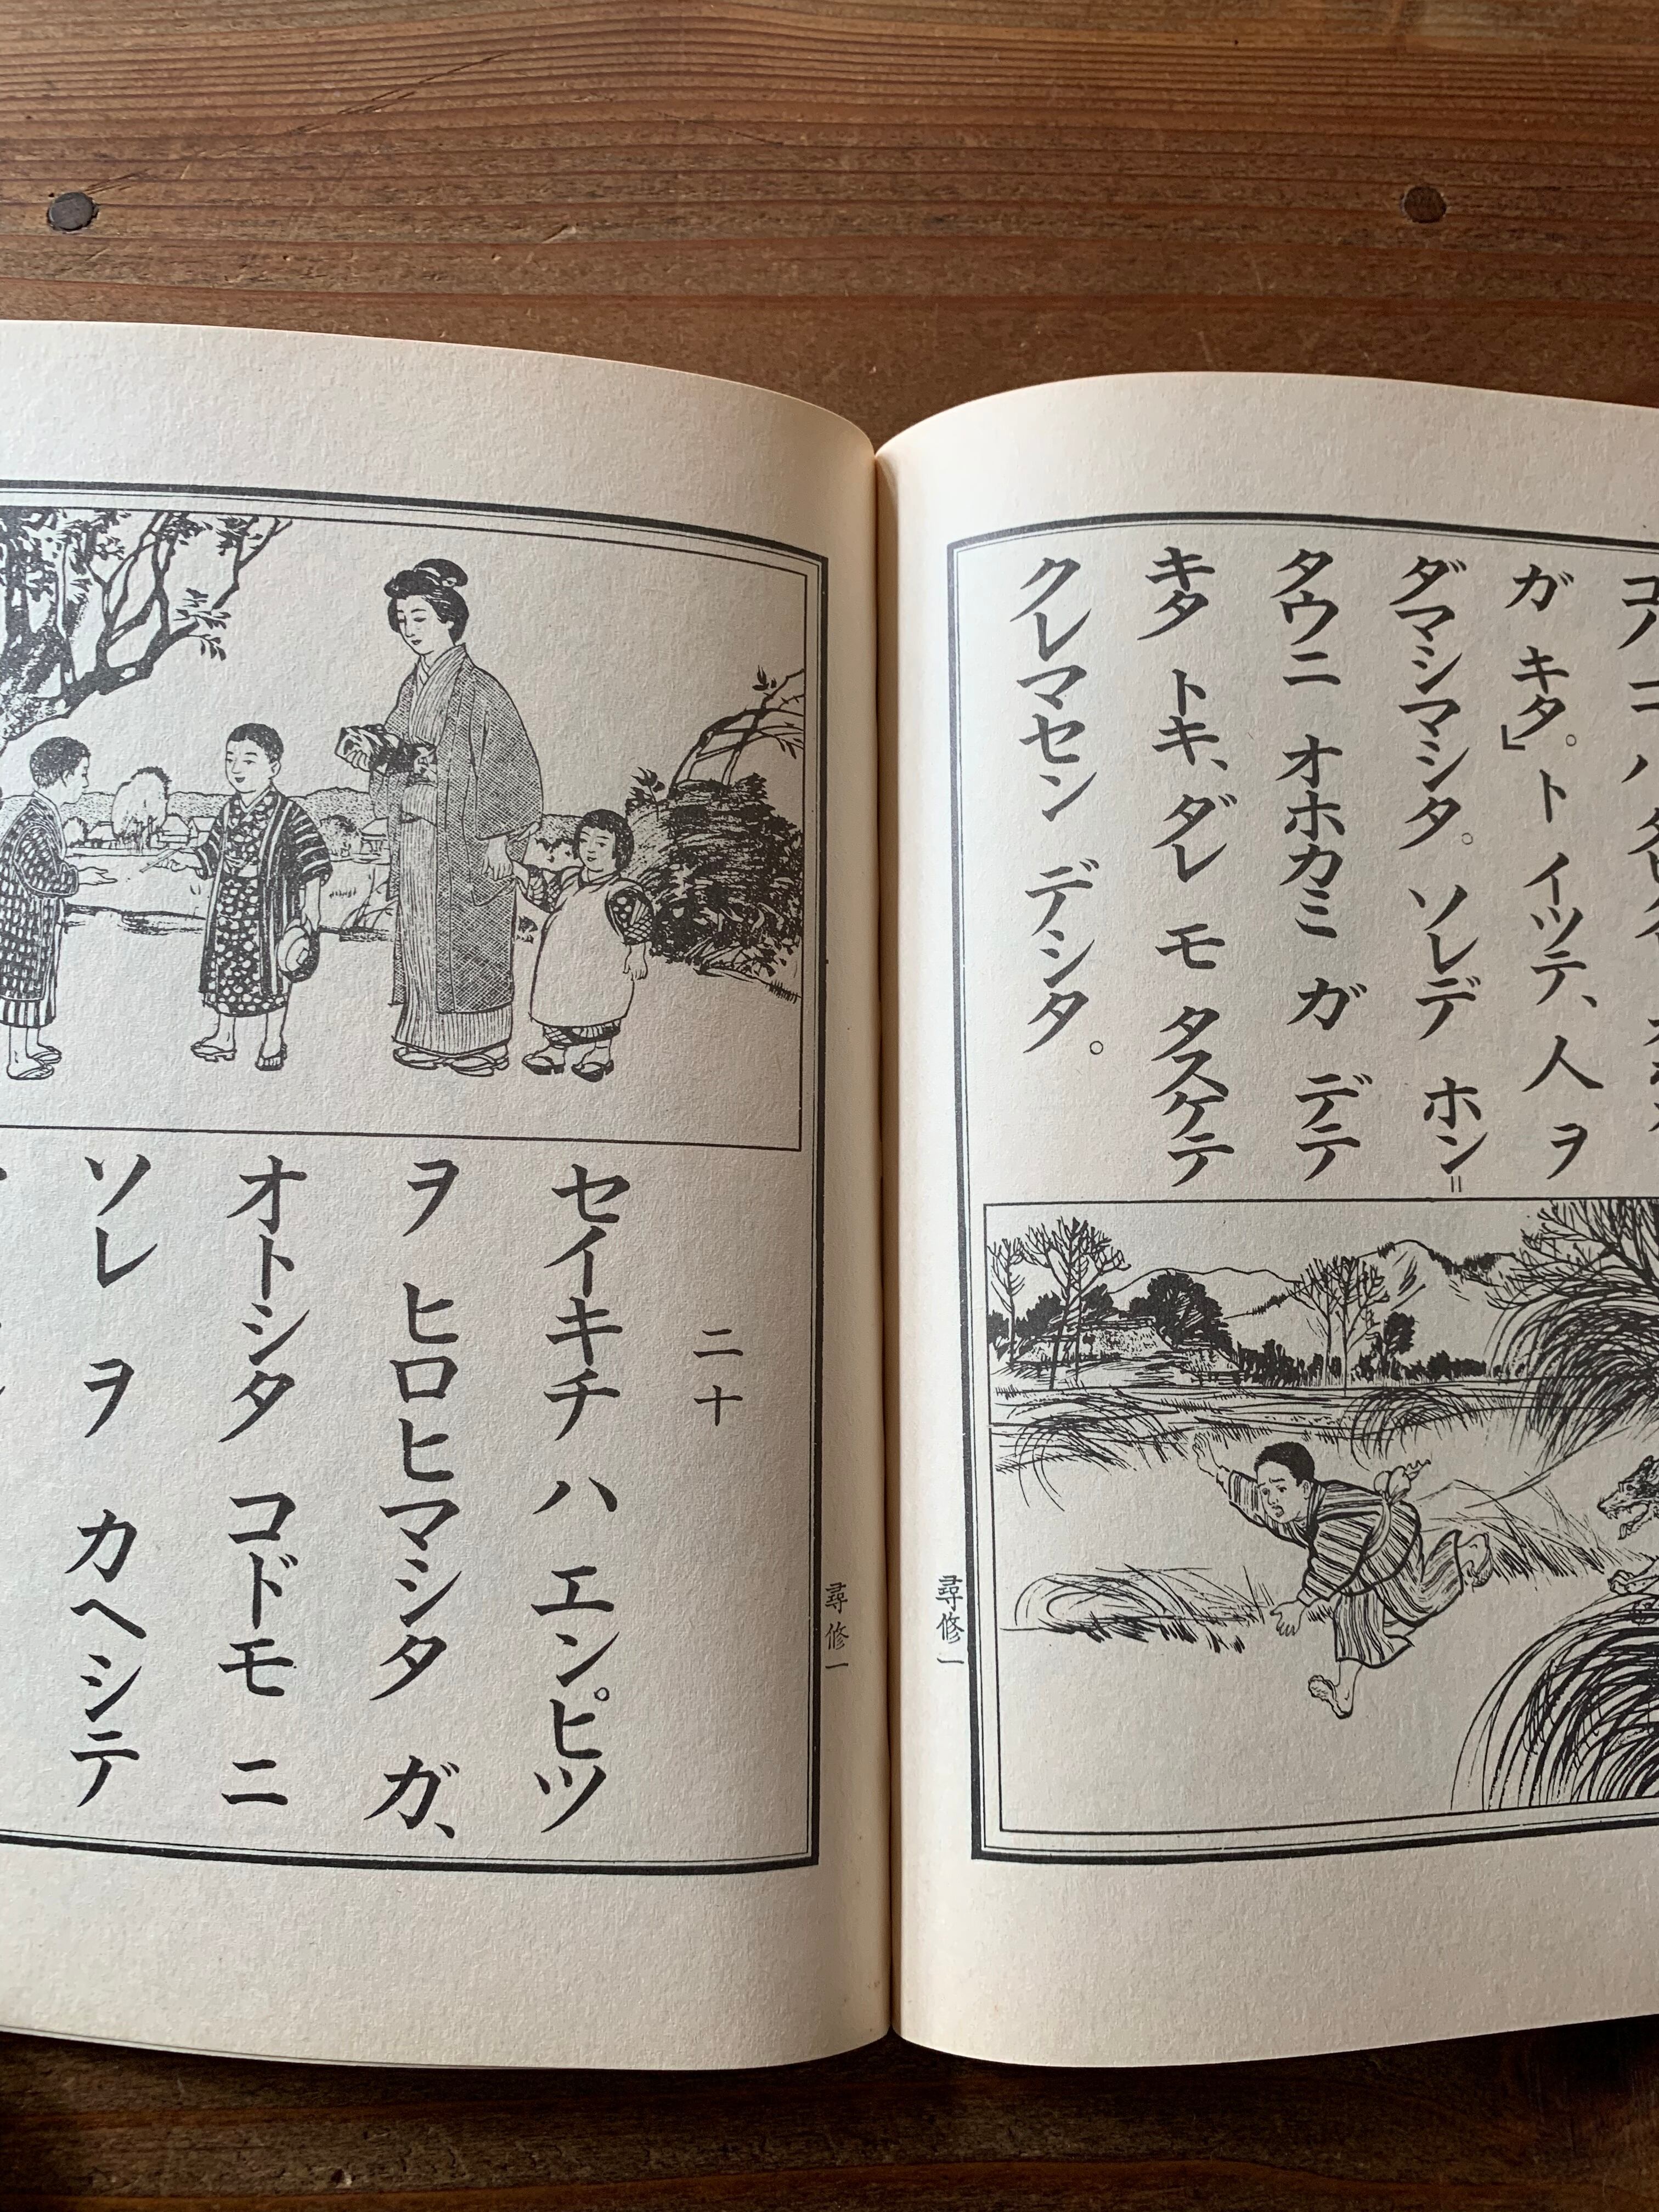 ガ キタ。」ト イツテ、人 ヲ
ダマシマシタ。ソレデ ホン=
タウニ オホカミ ガ デテ
キタ トキ、ダレ モ タスケテ
クレマセン デシタ。
尋修一
尋修一
二十
セイキチ ハ エンピツ
ヲ ヒロヒマシタ ガ、
オトシタ コドモ ニ
ソレ ヲ カヘシテ